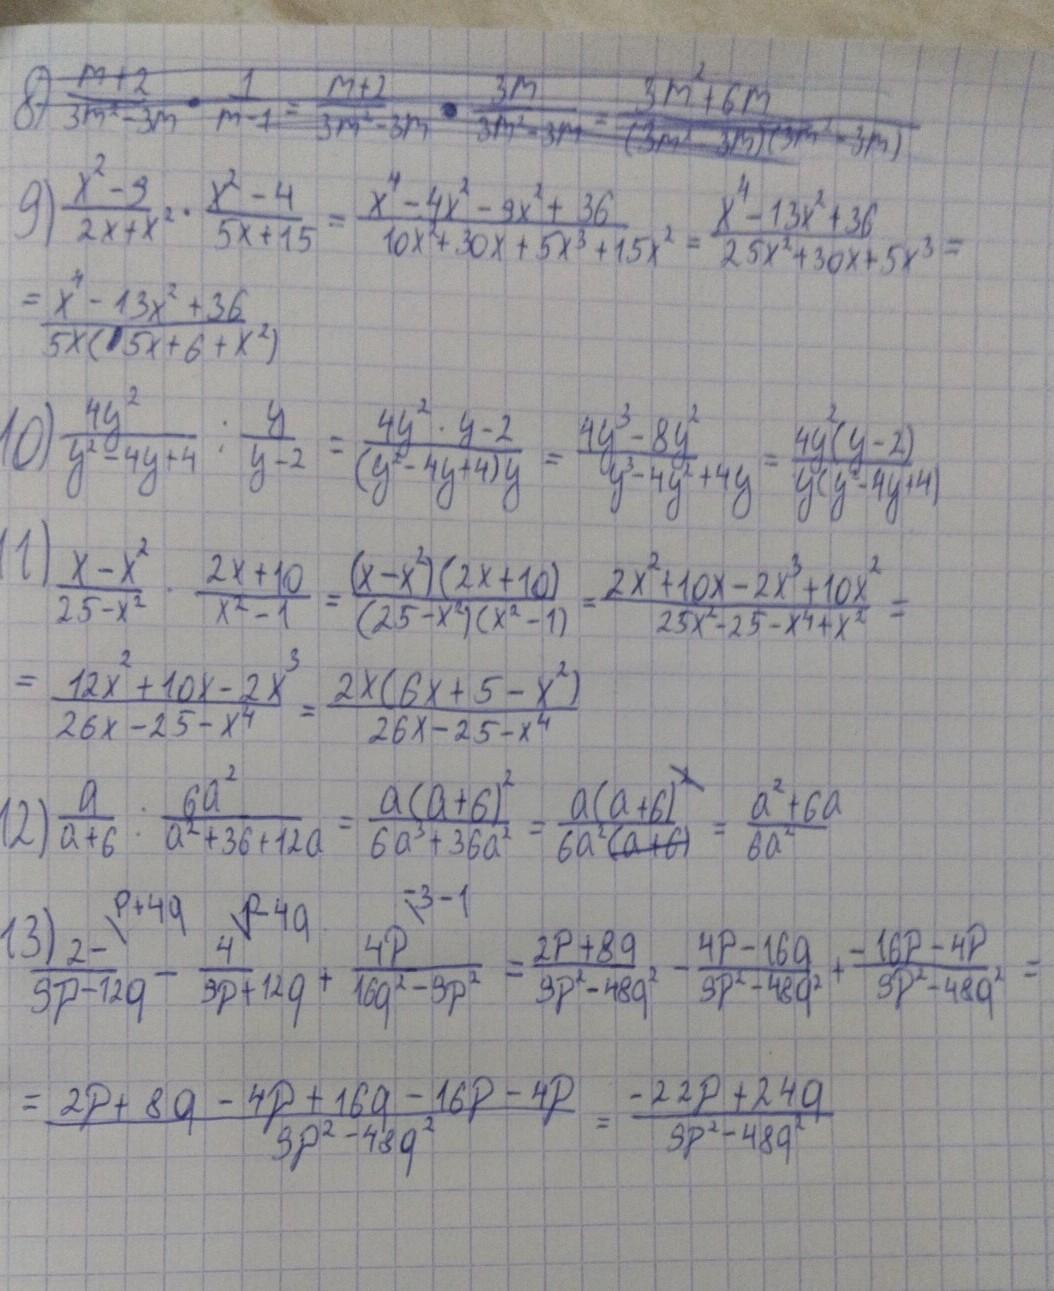 8) (m+2)/(3m²-3m) · 1/(m-1) = (m+2)/(3m²-3m) · 3m/(3m²-3m) = (3m²+6m)/((3m²-3m)(3m²-3m))
9) (x²-9)/(2x+x²) · (x²-4)/(5x+15) = (x⁴-4x²-9x²+36)/(10x²+30x+5x³+15x²) = (x⁴-13x²+36)/(25x²+30x+5x³) =
= (x⁴-13x²+36)/(5x(5x+6+x²))
10) 4y²/(y²-4y+4) : y/(y-2) = (4y²·y-2)/((y²-4y+4)y) = (4y³-8y²)/(y³-4y²+4y) = (4y²(y-2))/(y(y²-4y+4))
11) (x-x²)/(25-x²) · (2x+10)/(x²-1) = ((x-x²)(2x+10))/((25-x²)(x²-1)) = (2x²+10x-2x³+10x²)/(25x²-25-x⁴+x²) =
= (12x²+10x-2x³)/(26x-25-x⁴) = (2x(6x+5-x²))/(26x-25-x⁴)
12) a/(a+6) : 6a²/(a²+36+12a) = (a(a+6)²)/(6a³+36a²) = (a(a+6)²)/(6a²(a+6)) = (a²+6a)/(6a²)
p+4q p-4q -3-1
13) 2-/(3p-12q) - 4/(3p+12q) + 4p/(16q²-9p²) = (2p+8q)/(3p²-48q²) - (4p-16q)/(3p²-48q²) + (-16p-4p)/(3p²-48q²) =
= (2p+8q-4p+16q-16p-4p)/(3p²-48q²) = (-22p+24q)/(3p²-48q²)